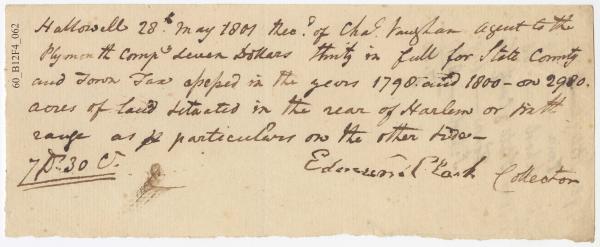 60_B12F4_062
Hallowell 28th May 1801 Recd of Chas Vaughan Agent to the
Plymouth Compy seven Dollars thirty in full for State County
and Town Tax assessed in the years 1798 and 1800 - on 2980
acres of land situated in the rear of Harlem or
range as pr particulars on the other side -
7 Ds 30 Cs
Edmund Collector